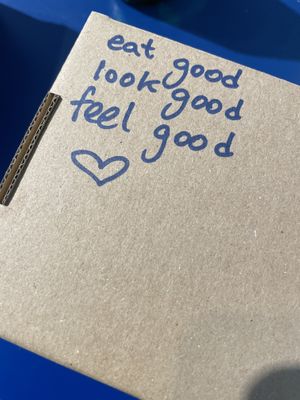 eat good
look good
feel good